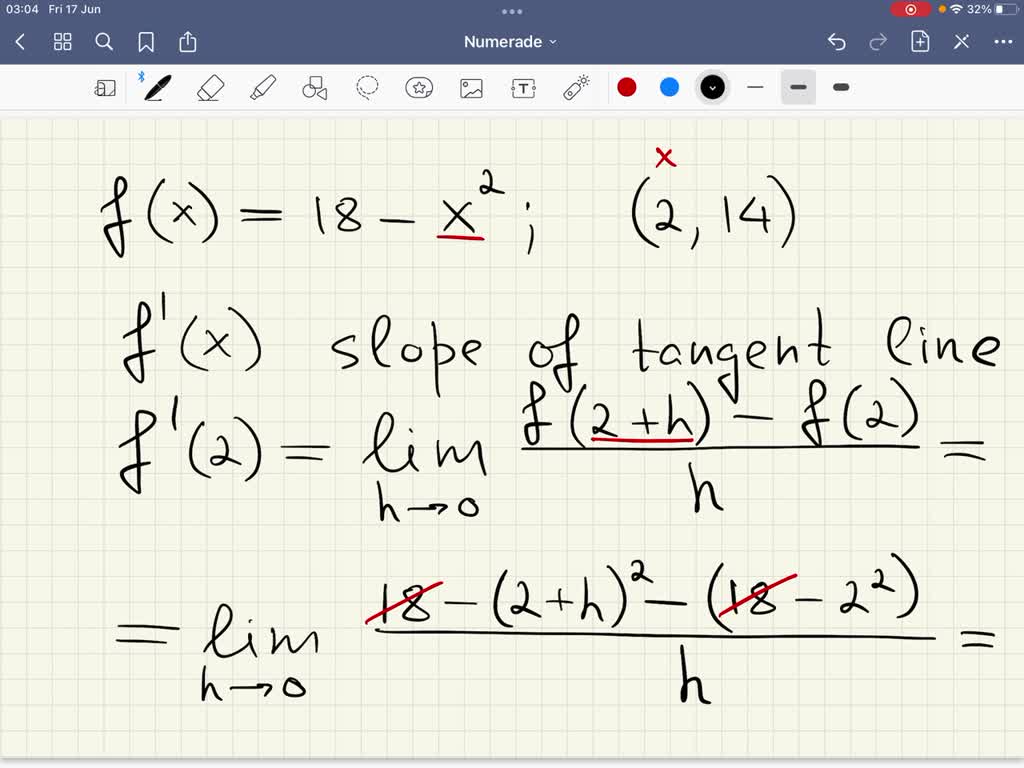 03:04 Fri 17 Jun 32%
Numerade
x
f(x) = 18 - x² ; (2, 14)
f'(x) slope of tangent line
f'(2) = lim h→0 (f(2+h) - f(2))/h =
= lim h→0 (18 - (2+h)² - (18 - 2²))/h =